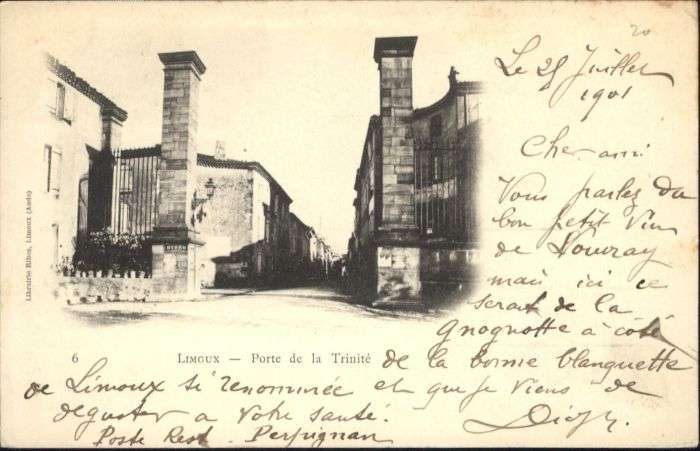 20
Le 25 Juillet
1901
Cher ami
Vous parlez du
bon petit Vin
de Vouvray
mais ici ce
serait de la
Gnognotte à côté
de la bonne blanquette
de Limoux si renommée et que je viens de
deguster a Votre santé.
Poste Rest. Perpignan
6
LIMOUX — Porte de la Trinité
Librairie Ribes, Limoux (Aude)